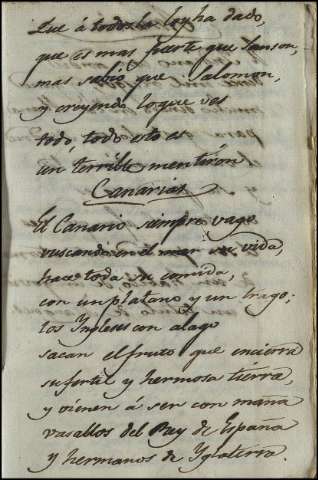 Que á todos la ley ha dado,
que es mas fuerte que Sanson,
mas sabio que Salomon,
y creyendo lo que ves
todo, todo esto es
un terrible mentiron
Canarias
El Canario siempre vago
vuscando en el mar su vida,
hace toda su comida,
con un platano y un trago;
los Ingleses con alago
sacan el fruto que encierra
su fertil y hermosa tierra,
y vienen á ser con maña
vasallos del Rey de España
y hermanos de Ynglaterra.